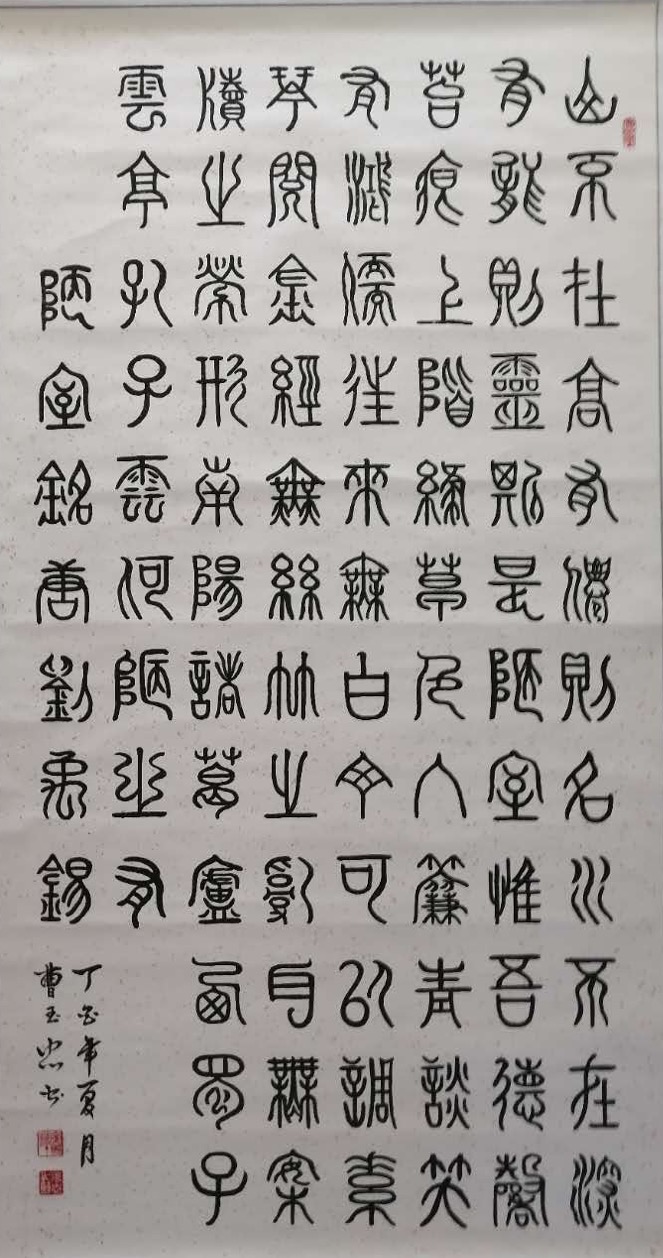 山不在高有僊則名水不在深
有龍則靈斯是陋室惟吾德馨
苔痕上階綠草色入簾青談笑
有鴻儒往來無白丁可以調素
琴閱金經無絲竹之亂耳無案
牘之勞形南陽諸葛廬西蜀子
雲亭孔子雲何陋之有
陋室銘唐劉禹錫
丁酉年夏月
曹玉忠书